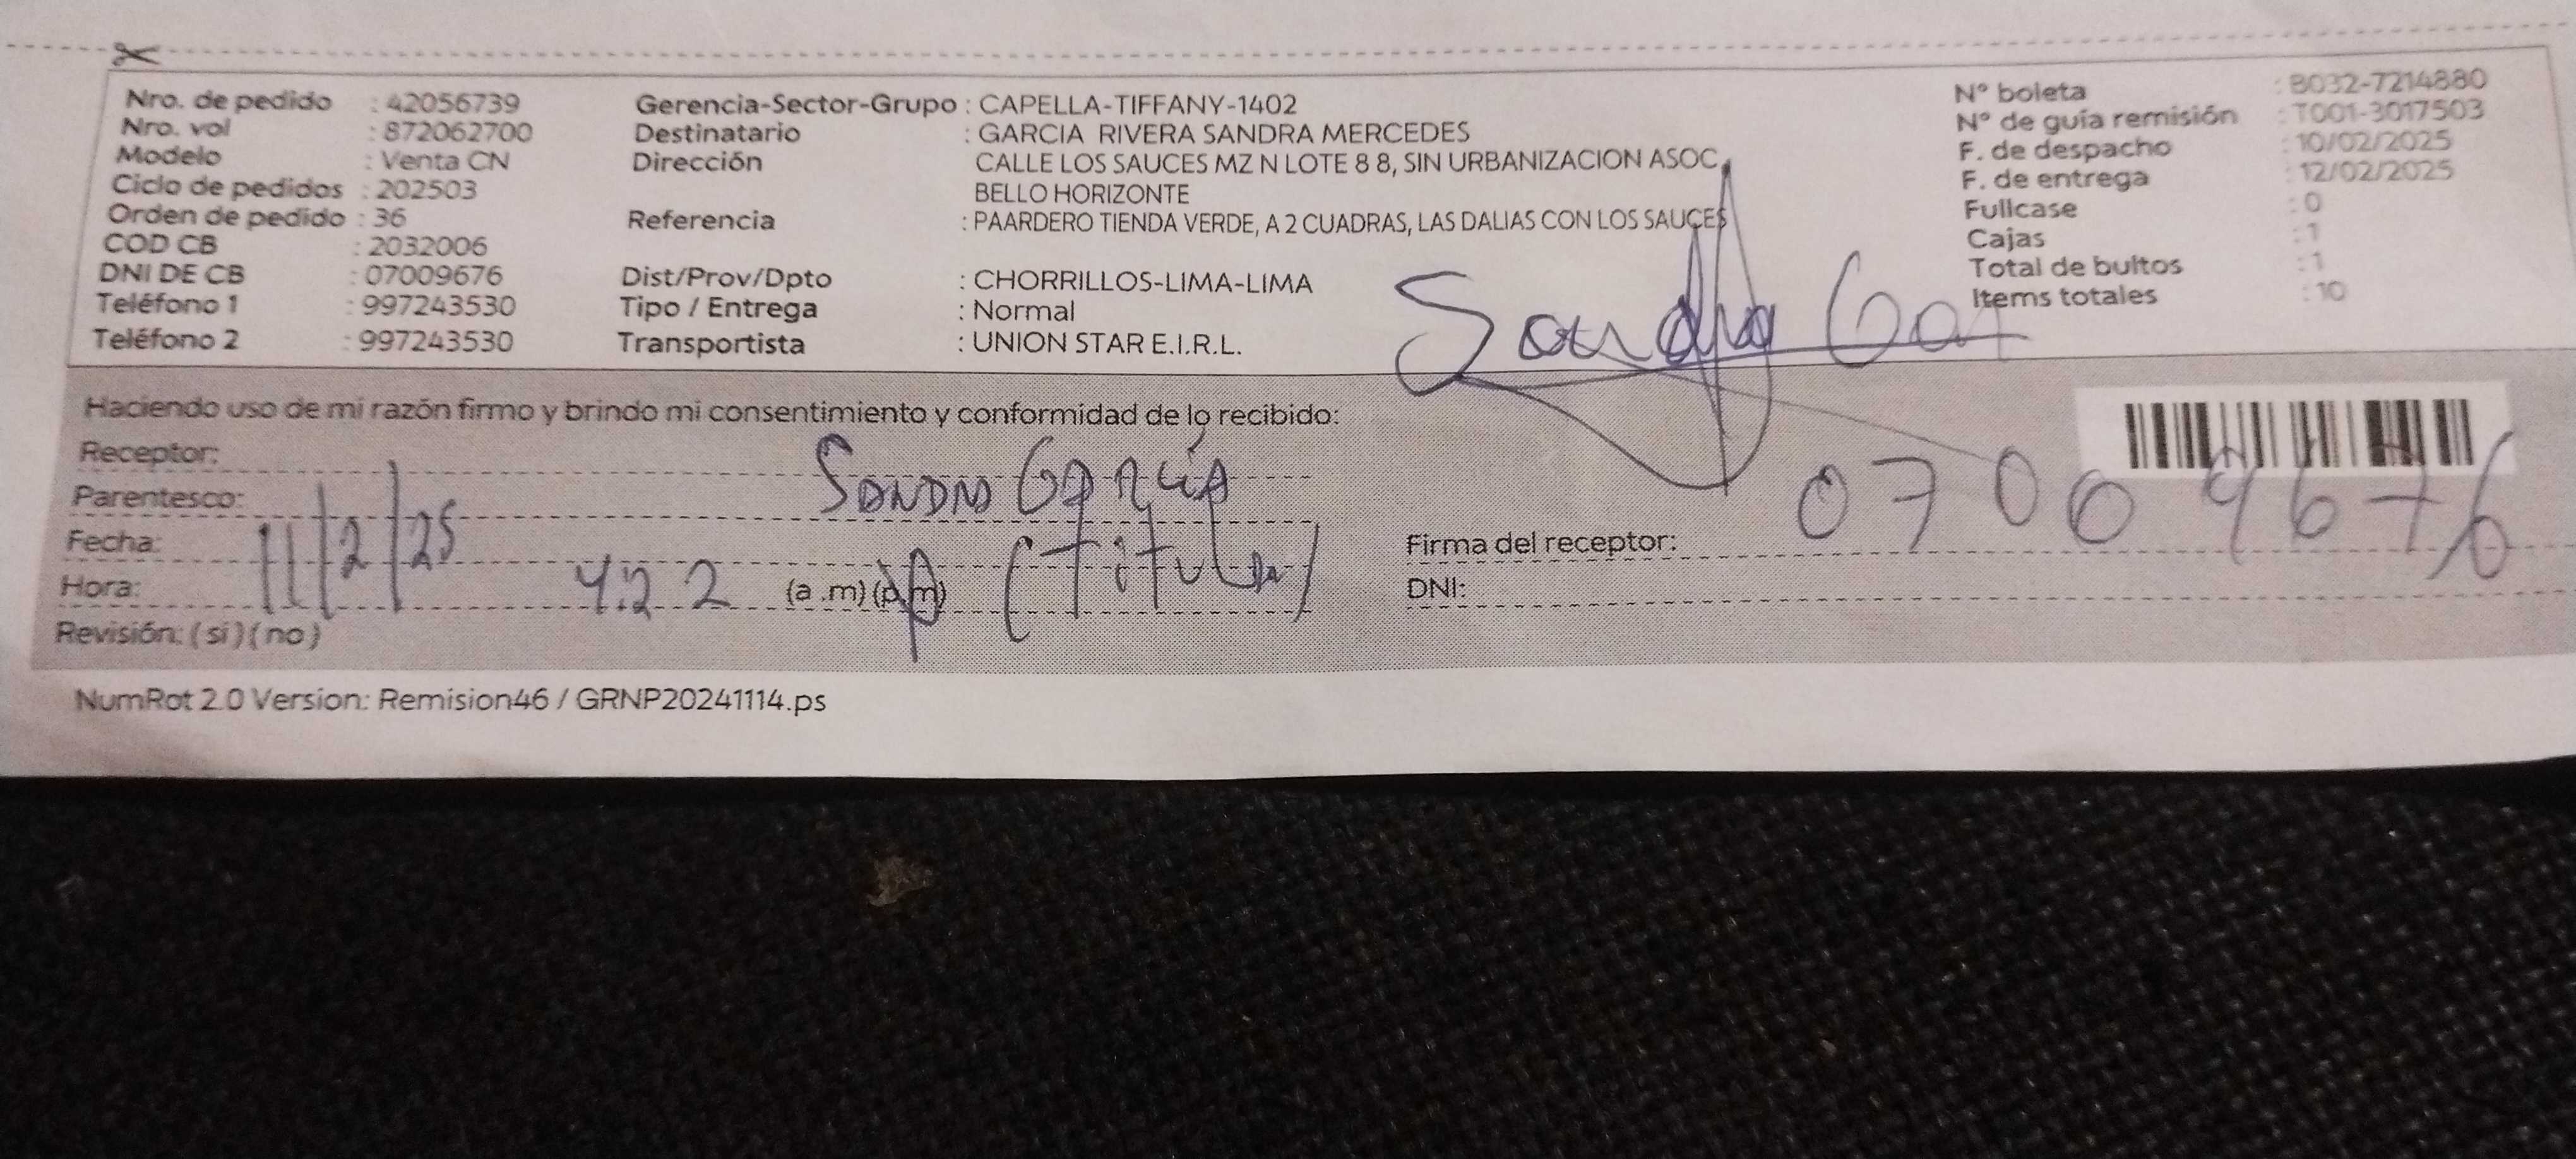 Nro. de pedido : 42056739
Nro. vol : 872062700
Modelo : Venta CN
Ciclo de pedidos : 202503
Orden de pedido : 36
COD CB : 2032006
DNI DE CB : 07009676
Teléfono 1 : 997243530
Teléfono 2 : 997243530
Gerencia-Sector-Grupo : CAPELLA-TIFFANY-1402
Destinatario : GARCIA RIVERA SANDRA MERCEDES
Dirección CALLE LOS SAUCES MZ N LOTE 8 8, SIN URBANIZACION ASOC,
BELLO HORIZONTE
Referencia : PAARDERO TIENDA VERDE, A 2 CUADRAS, LAS DALIAS CON LOS SAUCES
Dist/Prov/Dpto : CHORRILLOS-LIMA-LIMA
Tipo / Entrega : Normal
Transportista : UNION STAR E.I.R.L.
N° boleta : B032-7214880
N° de guía remisión : T001-3017503
F. de despacho : 10/02/2025
F. de entrega : 12/02/2025
Fullcase : 0
Cajas : 1
Total de bultos : 1
Items totales : 10
Sandra Gar
Haciendo uso de mi razón firmo y brindo mi consentimiento y conformidad de lo recibido:
Receptor: Sandra García
Parentesco: (Titular)
Fecha: 11/2/25
Hora: 4:22 (a .m) (p.m)
Revisión: (si) (no)
Firma del receptor: 07009676
DNI:
NumRot 2.0 Version: Remision46 / GRNP20241114.ps